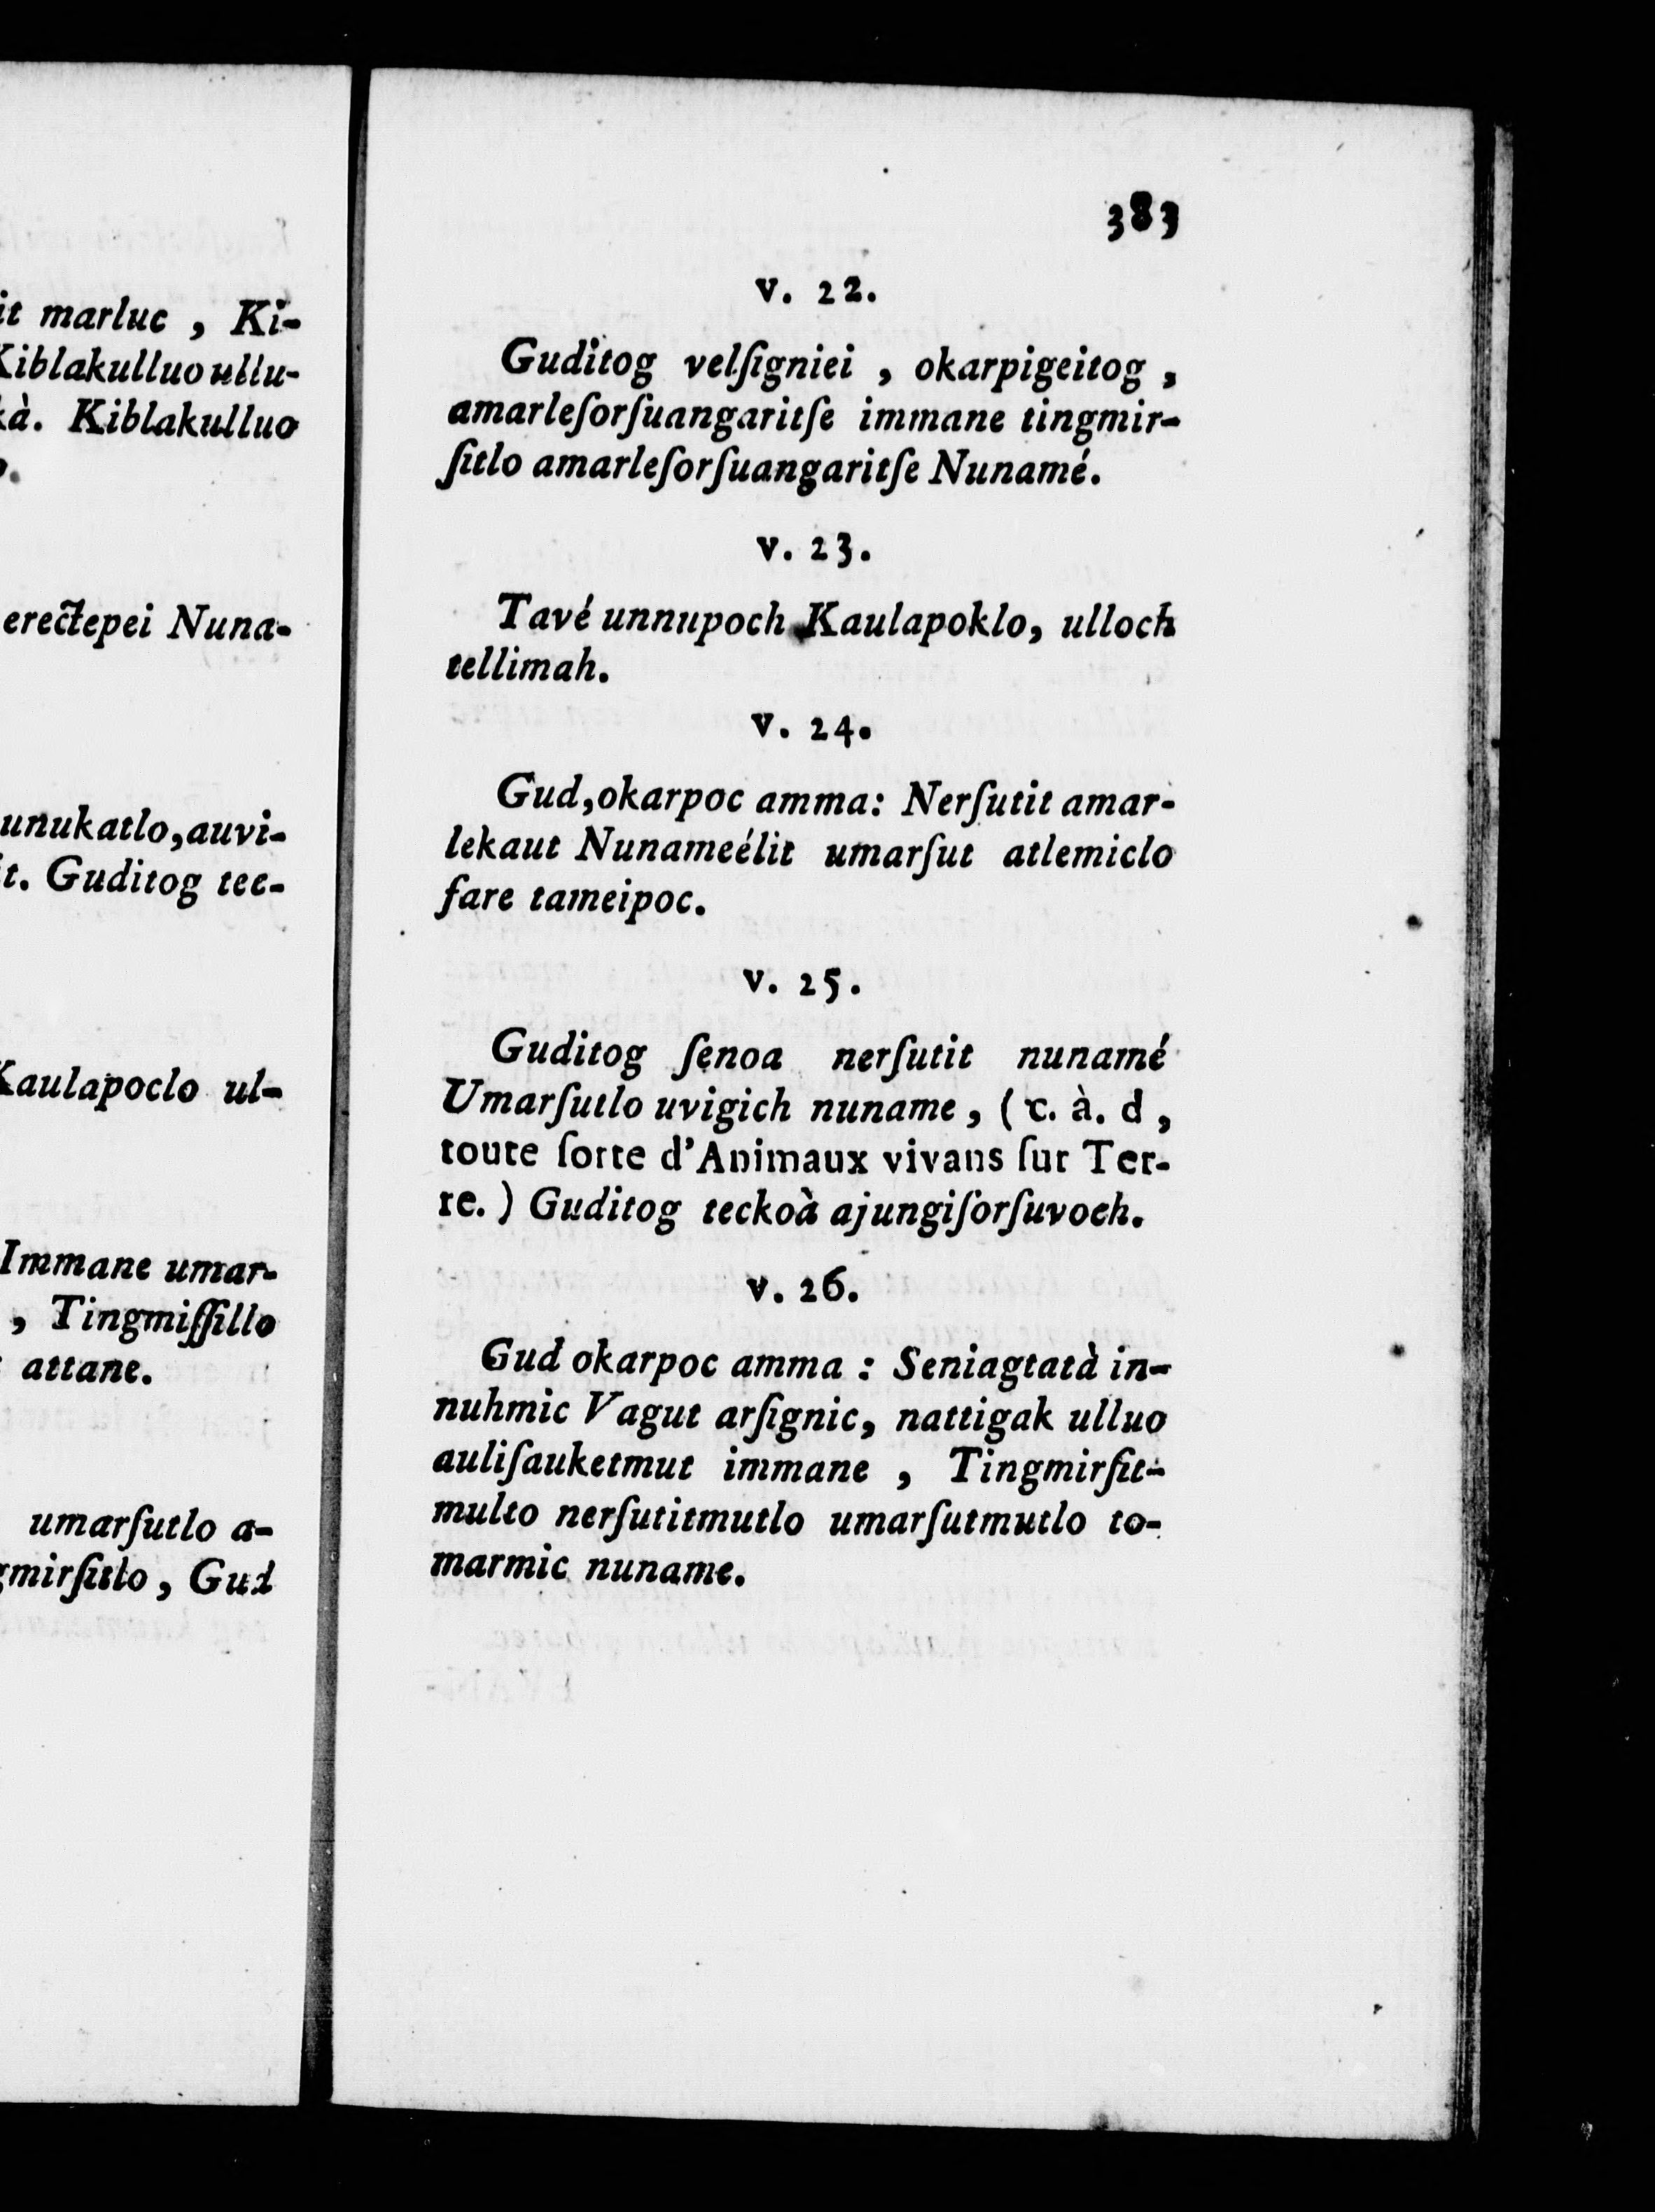 it marluc , Ki-
Kiblakulluo ullu-
kà. Kiblakulluo
erectepei Nuna-
unukatlo, auvi-
it. Guditog tec-
Kaulapoclo ul-
Immane umar-
, Tingmiſſillo
attane.
umarſutlo a-
gmirſitlo, Gud
383
v. 22.
Guditog velſigniei , okarpigeitog ,
amarleſorſuangaritſe immane tingmir-
ſitlo amarleſorſuangaritſe Nunamé.
v. 23.
Tavé unnupoch Kaulapoklo, ulloch
tellimah.
v. 24.
Gud, okarpoc amma: Nerſutit amar-
lekaut Nunameélit umarſut atlemiclo
ſare tameipoc.
v. 25.
Guditog ſenoa nerſutit nunamé
Umarſutlo uvigich nuname, ( c. à. d ,
toute ſorte d'Animaux vivans ſur Ter-
re. ) Guditog teckoà ajungiſorſuvoch.
v. 26.
Gud okarpoc amma : Seniagtatà in-
nuhmic Vagut arſignic, nattigak ulluo
auliſauketmut immane , Tingmirſit-
multo nerſutitmutlo umarſutmutlo to-
marmic nuname.